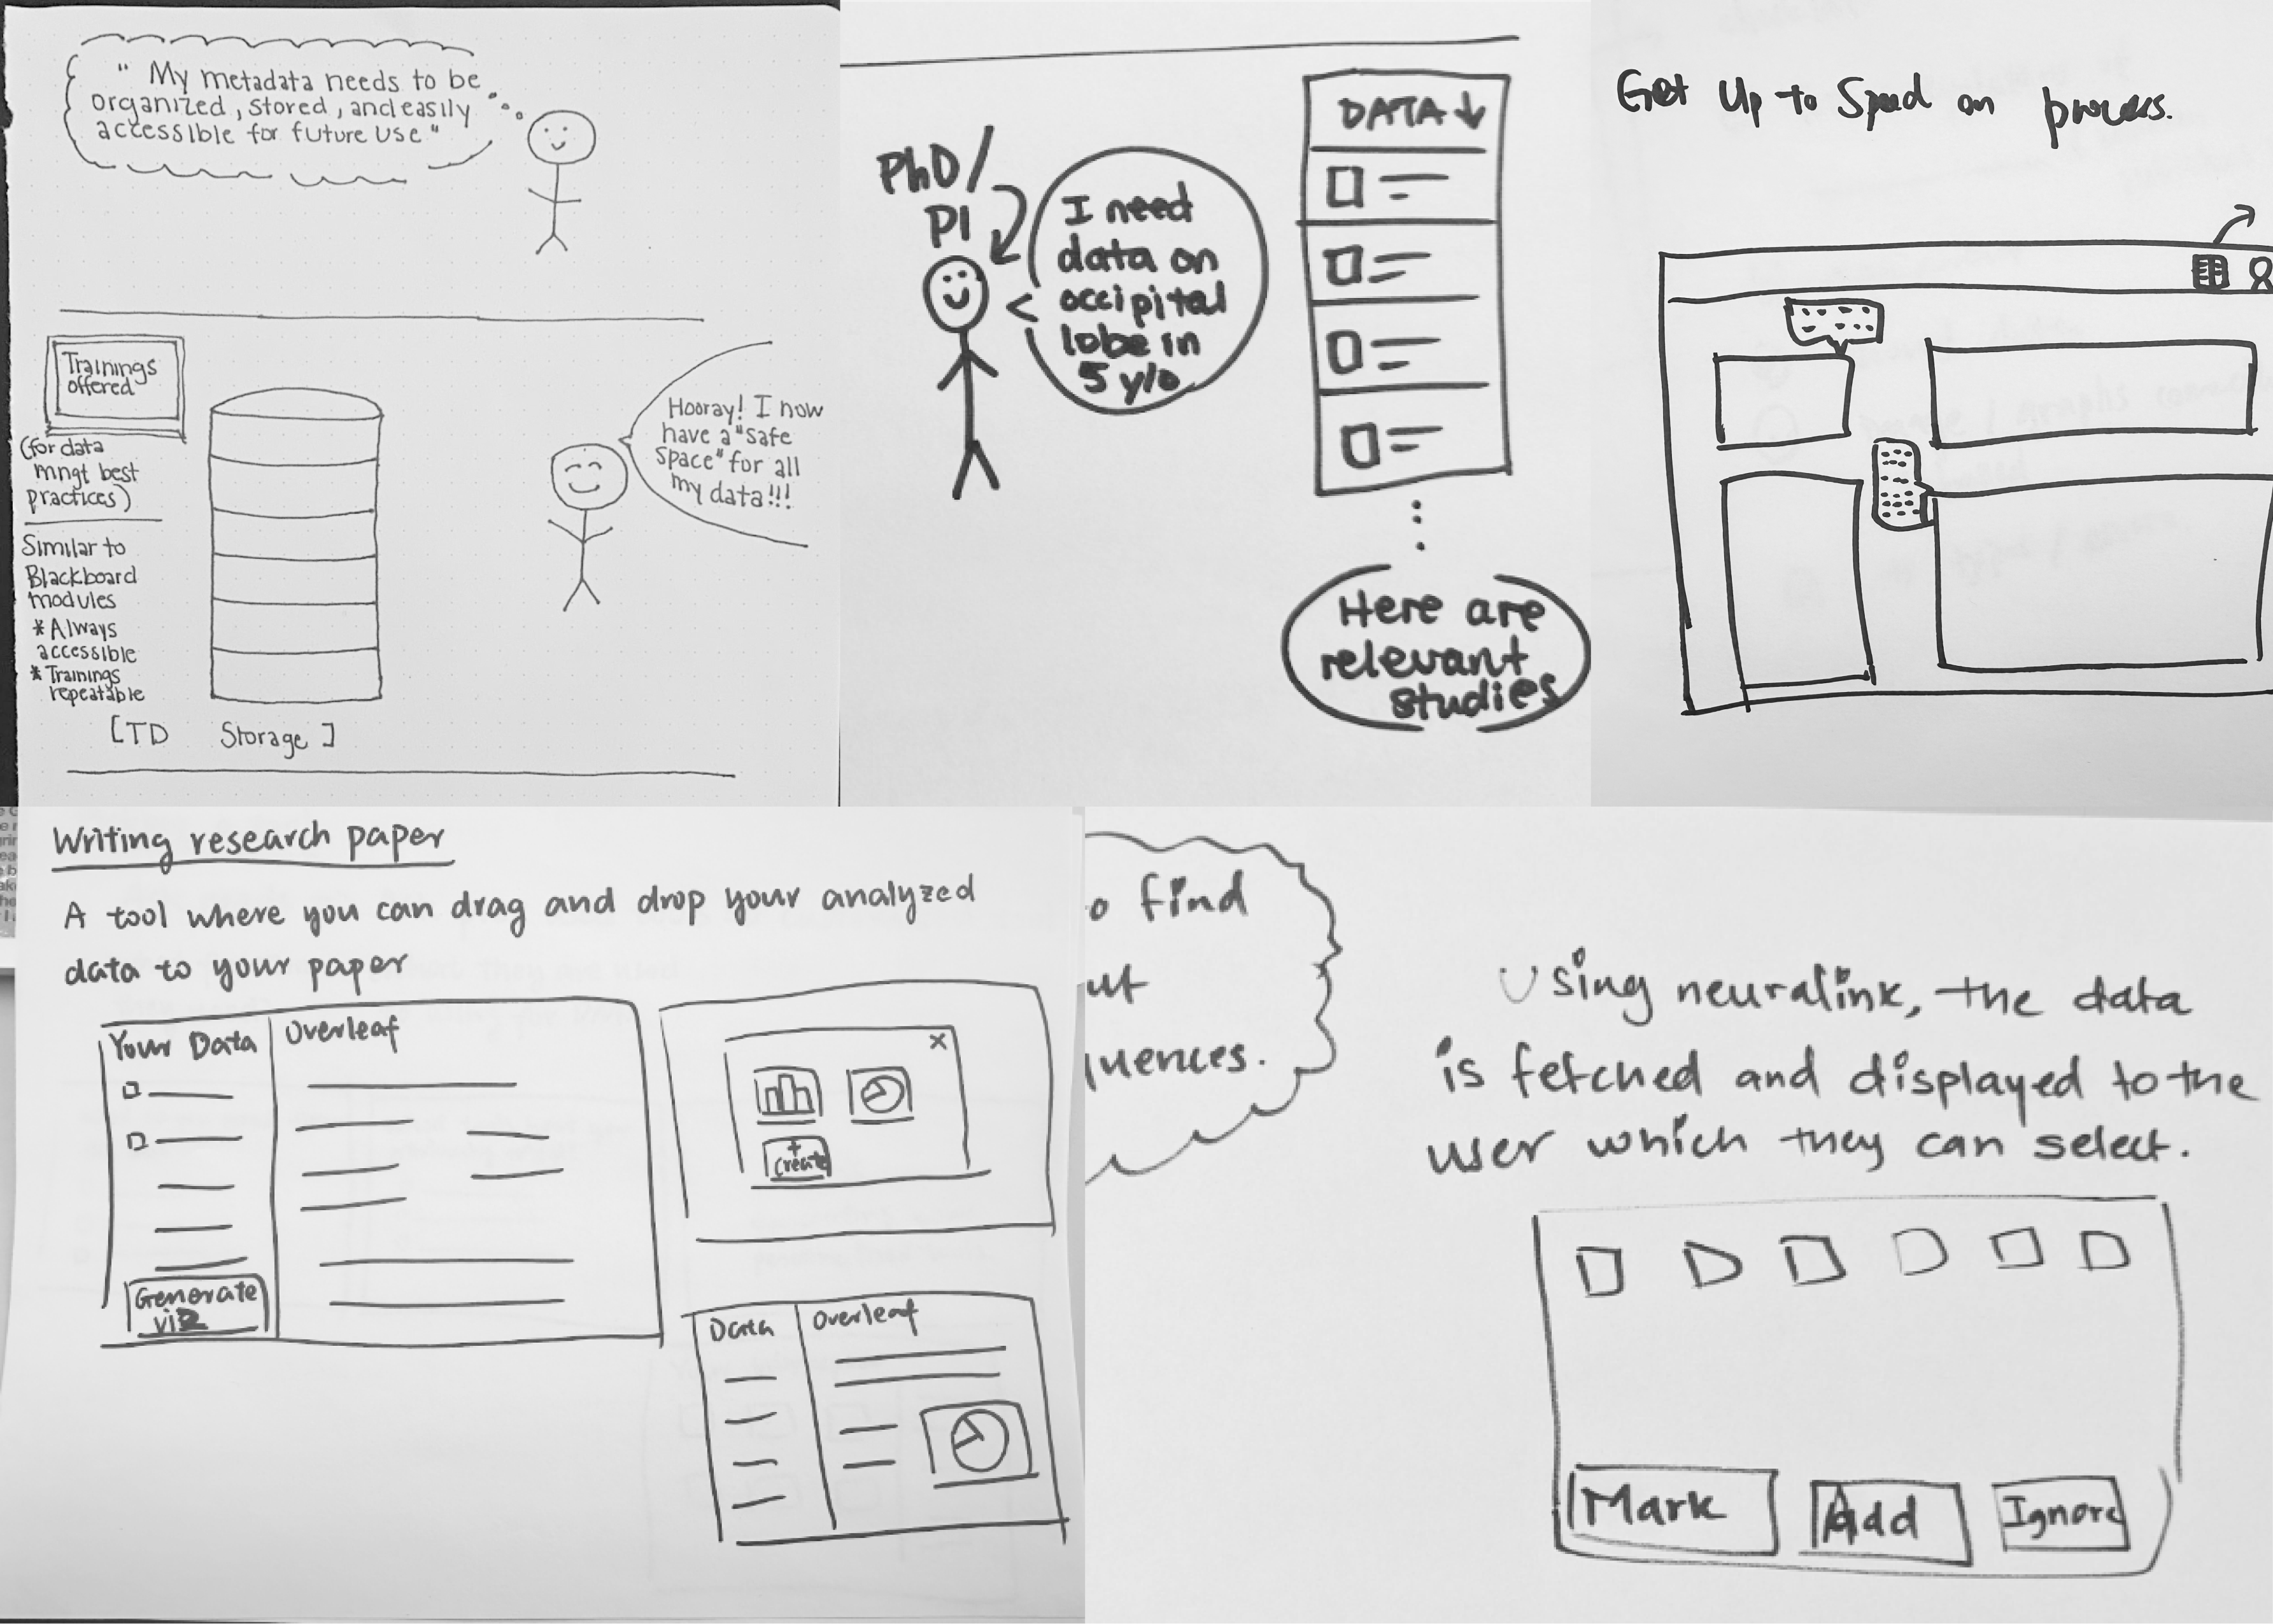 " My metadata needs to be
organized, stored, and easily
accessible for future use "
Trainings
offered
(for data
mngt best
practices)
Similar to
Blackboard
modules
* Always
accessible
* Trainings
repeatable
Hooray! I now
have a "safe
space" for all
my data!!!
[TD Storage]
PhD/
PI
I need
data on
occipital
lobe in
5 y/o
DATA ↓
Here are
relevant
studies
Get Up to Speed on process.
Writing research paper
A tool where you can drag and drop your analyzed
data to your paper
Your Data
Overleaf
Generate
viz
x
+
Create
Data
Overleaf
o find
ut
uences.
Using neuralink, the data
is fetched and displayed to the
user which they can select.
Mark
Add
Ignore